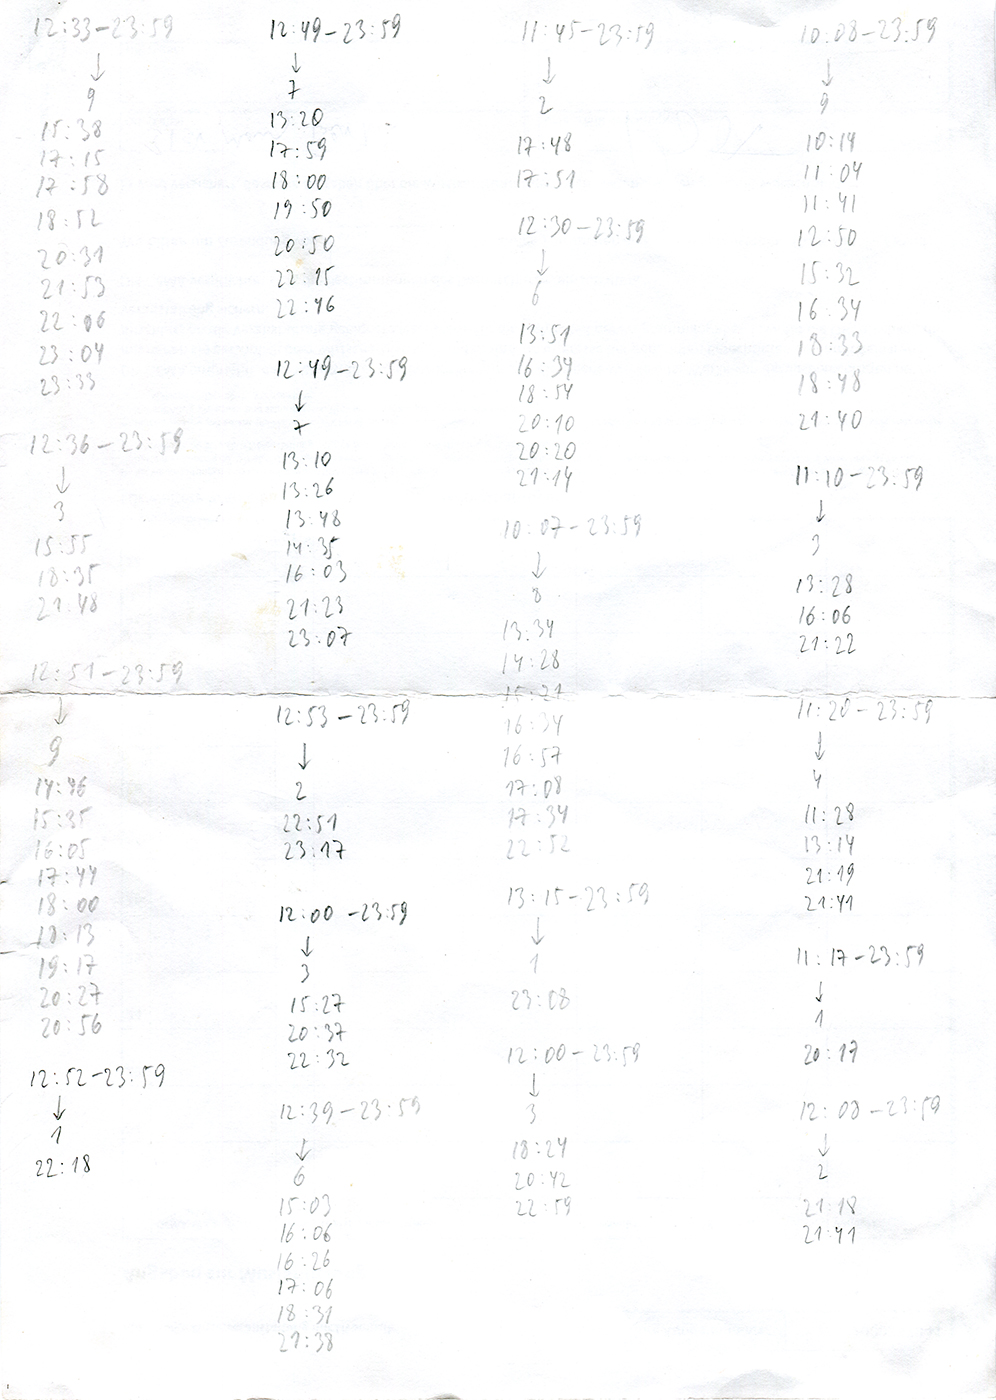 12:33-23:59
↓
9
15:38
17:15
17:58
18:52
20:31
21:53
22:06
23:04
23:33
12:36-23:59
↓
3
15:55
18:35
21:48
12:51-23:59
↓
9
14:46
15:35
16:05
17:44
18:00
18:13
19:17
20:27
20:56
12:52-23:59
↓
1
22:18
12:49-23:59
↓
7
13:20
17:59
18:00
19:50
20:50
22:15
22:46
12:49-23:59
↓
7
13:10
13:26
13:48
14:35
16:03
21:23
23:07
12:53-23:59
↓
2
22:51
23:17
12:00-23:59
↓
3
15:27
20:37
22:32
12:39-23:59
↓
6
15:03
16:06
16:26
17:06
18:31
21:38
11:45-23:59
↓
2
17:48
17:51
12:30-23:59
↓
6
13:51
16:34
18:54
20:10
20:20
21:14
10:07-23:59
↓
8
13:34
14:28
15:21
16:34
16:57
17:08
17:34
22:52
13:15-23:59
↓
1
23:08
12:00-23:59
↓
3
18:24
20:42
22:59
10:08-23:59
↓
9
10:14
11:04
11:41
12:50
15:32
16:34
18:33
18:48
21:40
11:10-23:59
↓
3
13:28
16:06
21:22
11:20-23:59
↓
4
11:28
13:14
21:19
21:41
11:17-23:59
↓
1
20:17
12:08-23:59
↓
2
21:18
21:41